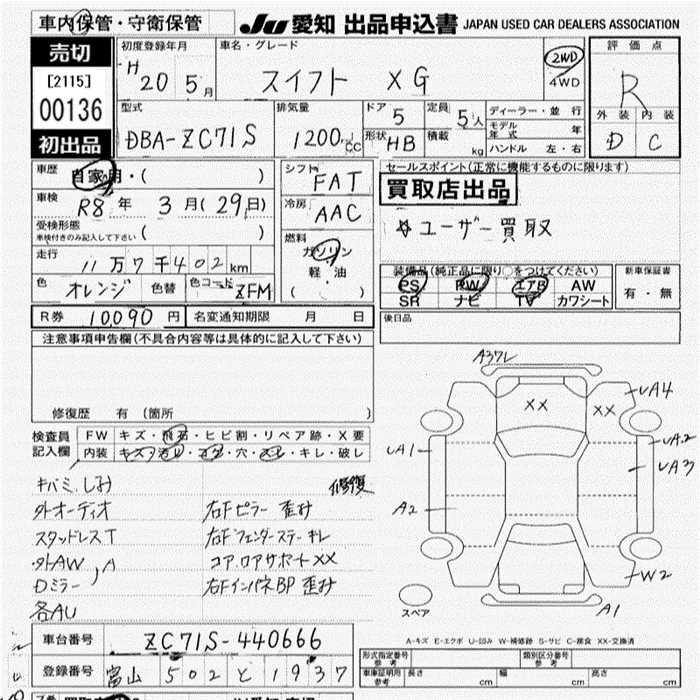 車内保管・守衛保管
JU 愛知 出品申込書 JAPAN USED CAR DEALERS ASSOCIATION
売切
[2115]
00136
初出品
初度登録年月
H 20 5月
車名・グレード
スイフト XG
2WD
4WD
評価点
R
外装 内装
D C
型式
DBA-ZC71S
排気量
1200 CC
ドア 5
形状 HB
定員 5人
積載 kg
ディーラー・並行
モデル年式 年
ハンドル 左・右
車歴 自家用・( )
車検 R8年 3月(29日)
受検形態
車検付きのみ記入して下さい ( )
走行
11万7千402km
色 オレンジ 色替 色コード ZFM
シフト
FAT
冷房
AAC
燃料
ガソリン
軽・油
( )
セールスポイント(正常に機能するものに限ります)
買取店出品
☆ユーザー買取
装備品(純正品に限り○をつけてください)
PS PW エアB AW
SR ナビ TV カワシート
新車保証書
有・無
R券 10,090円 名変通知期限 月 日
後日品
注意事項申告欄(不具合内容等は具体的に記入して下さい)
修復歴 有 (箇所 )
検査員
記入欄
FW キズ・飛石・ヒビ割・リペア跡・X要
内装 キズ・汚れ・コゲ・穴・スレ・キレ・破レ
キバミ、しみ 修復
外オーディオ 右Fピラー歪み
スタッドレスT 右Fフェンダーステーキレ
・外AW、A コア、ロアサポートXX
Dミラー 右FインパネBP歪み
各AU
A37L
XX
XX
UA4
UA1
UA2
UA3
A2
W2
A1
スペア
A-キズ E-エクボ U-凹み W-補修跡 S-サビ C-腐食 XX-交換済
車台番号 ZC71S-440666
登録番号 富山 502 と 1937
形式指定番号
参考
類別区分番号
参考
車庫証明用
参考
長さ cm 幅 cm 高さ cm